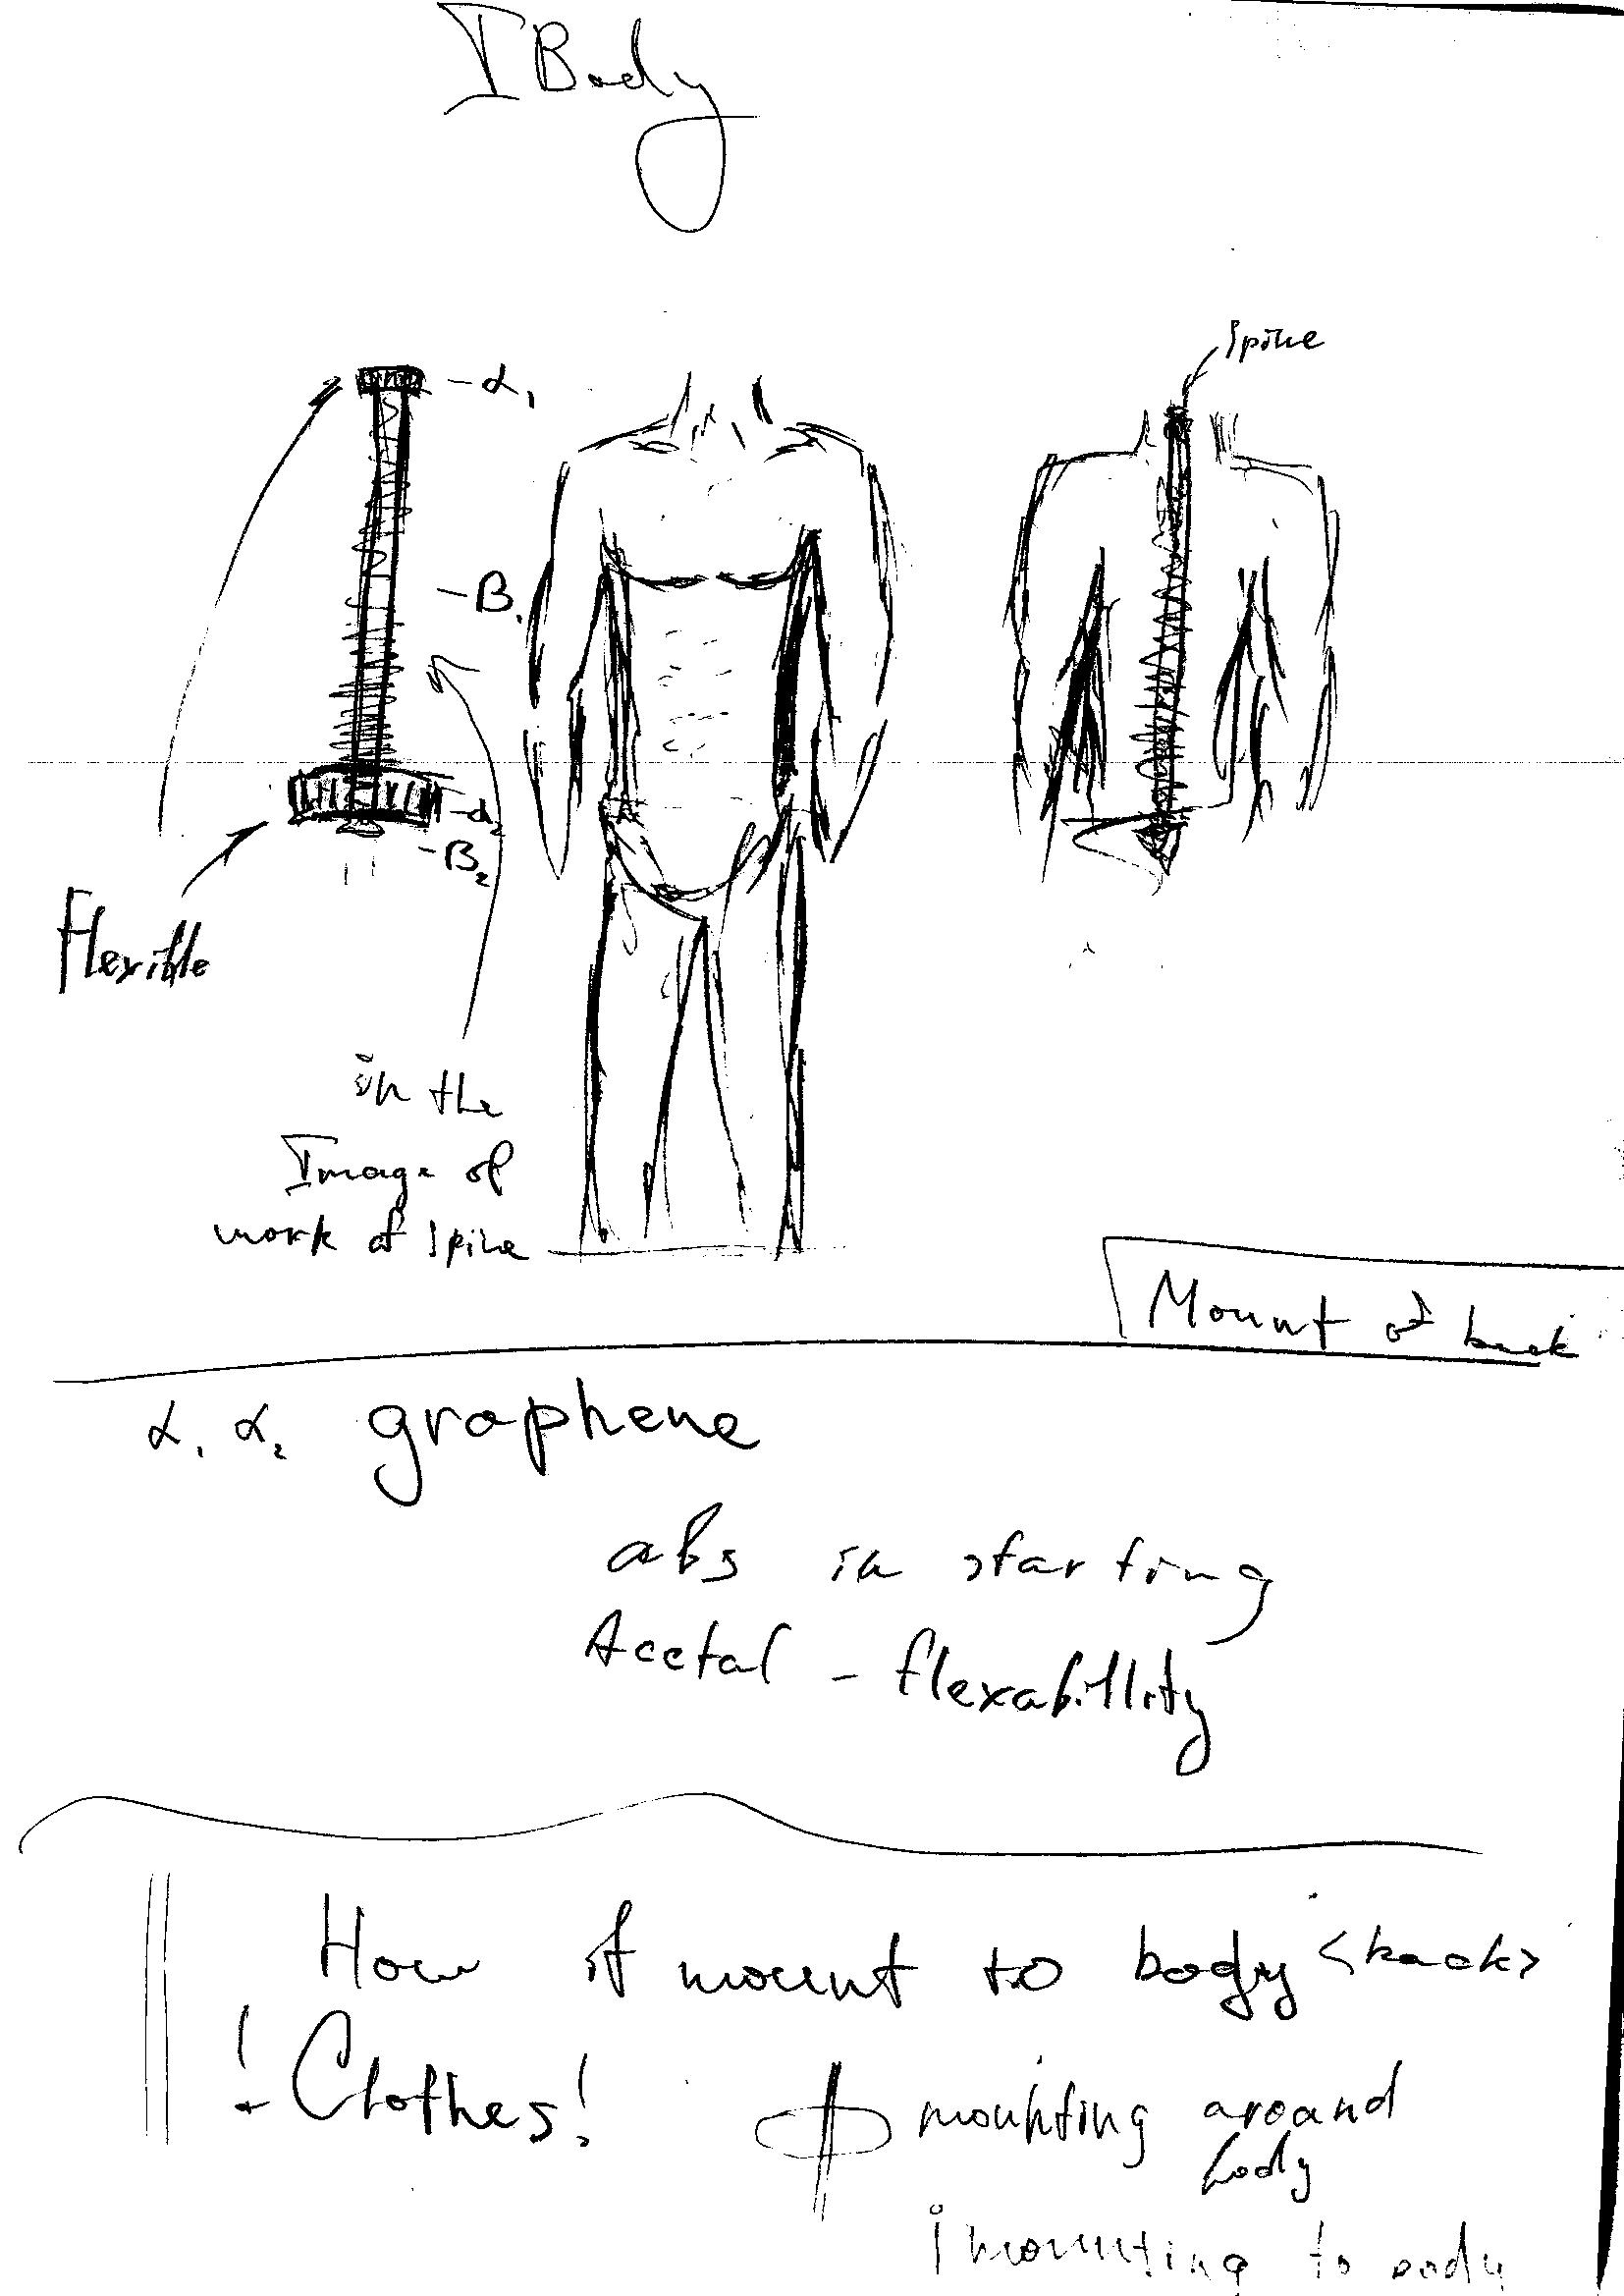 IBody
Spine
- α₁
- B₁
- α₂
- B₂
Flexible
in the
Image of
work of spine
Mount of back
α₁ α₂ graphene
abs in starting
Acetal - flexabillity
How it mount to body <back>
! Clothes!
mounting around
body
mounting to body